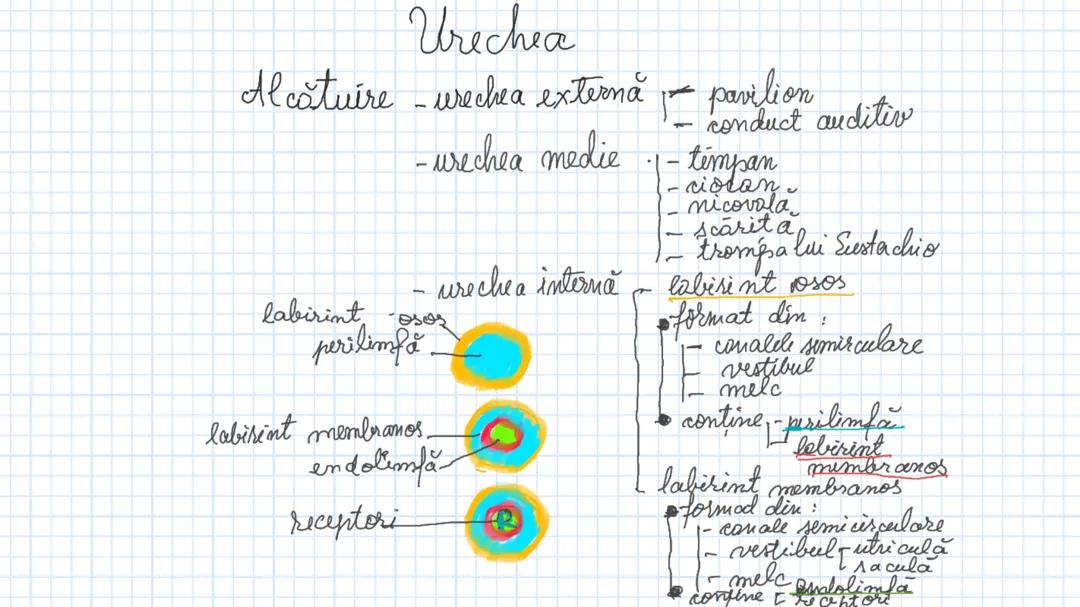 Urechea
Alcătuire - urechea externă - pavilion
- conduct auditiv
- urechea medie - timpan
- ciocan
- nicovală
- scăriță
- trompa lui Eustachio
- urechea internă - labirint osos
format din :
- canalele semicirculare
- vestibul
- melc
conține - perilimfă
labirint
membranos
labirint membranos
format din :
- canale semicirculare
- vestibul - utriculă
saculă
- melc
conține endolimfă
receptori
labirint osos
perilimfă
labirint membranos
endolimfă
receptori
R